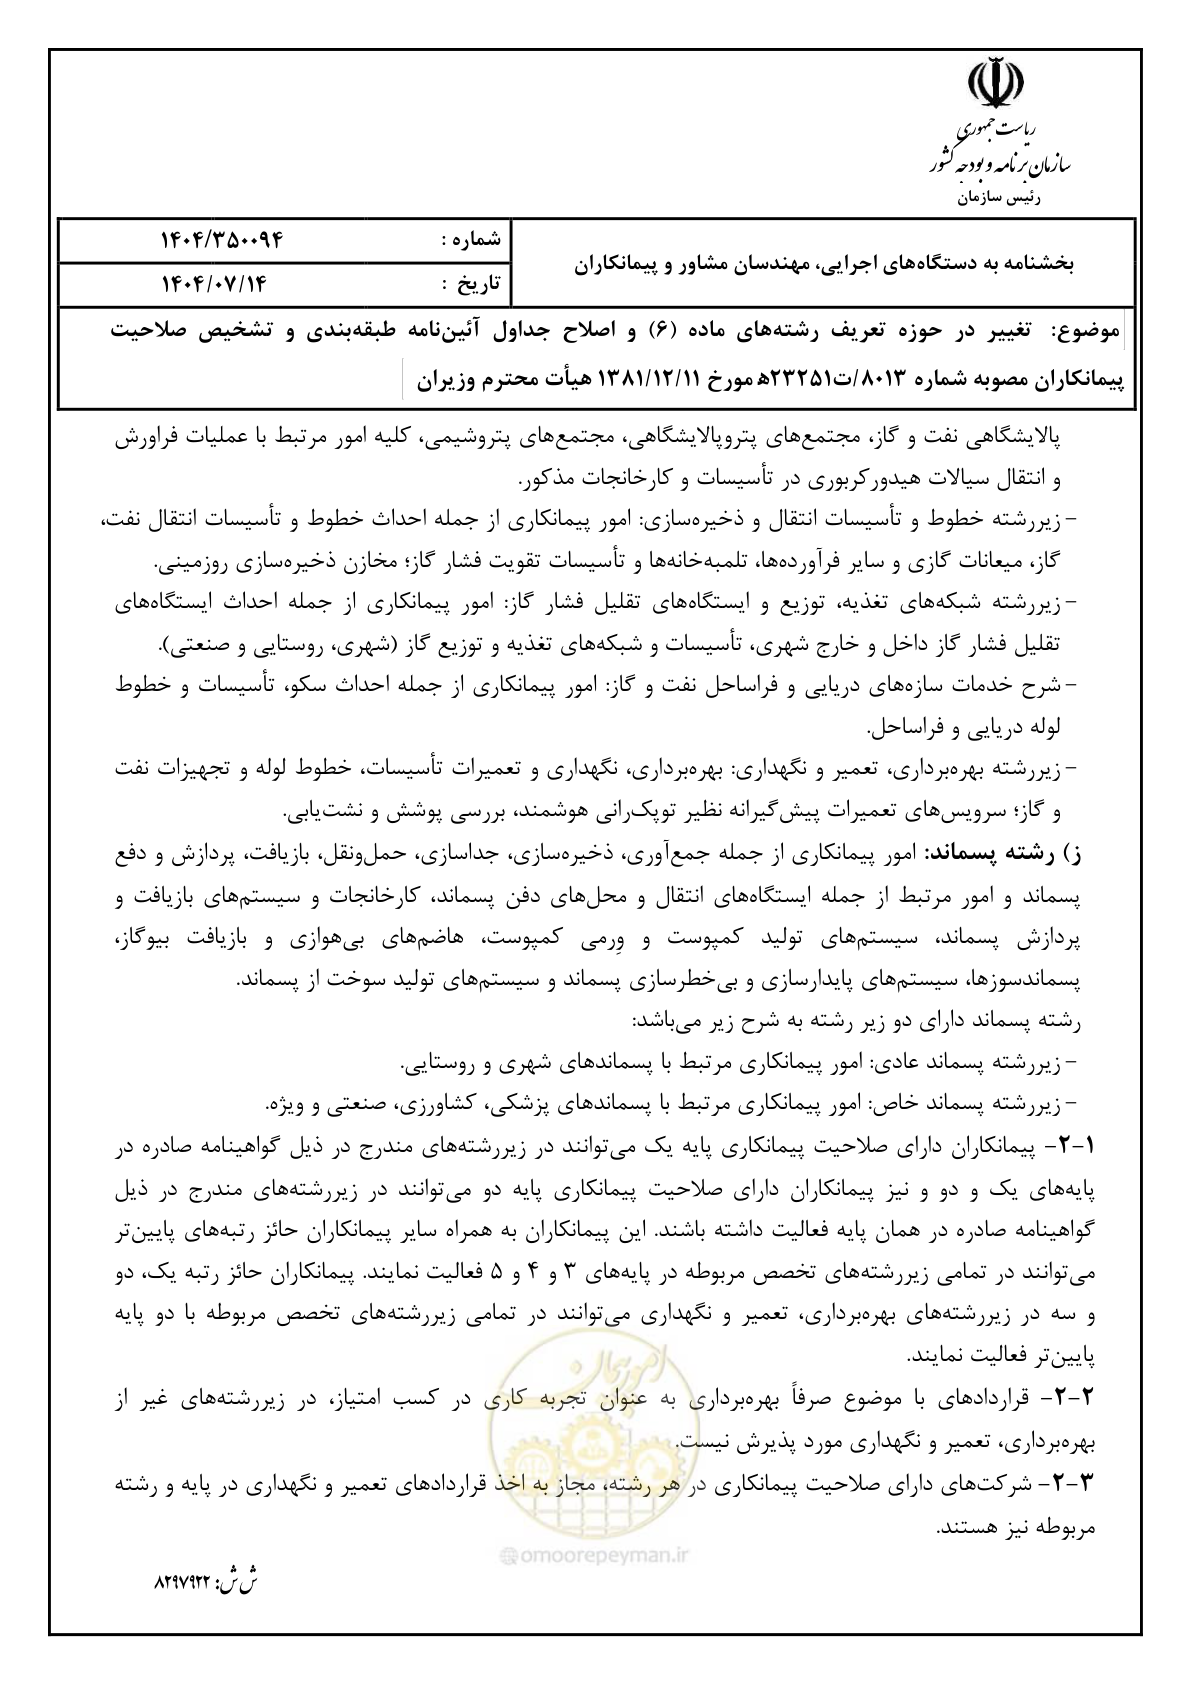 ریاست جمهوری
سازمان برنامه و بودجه کشور
رئیس سازمان
بخشنامه به دستگاه‌های اجرایی، مهندسان مشاور و پیمانکاران
شماره : ۱۴۰۴/۳۵۰۰۹۴
تاریخ : ۱۴۰۴/۰۷/۱۴
موضوع: تغییر در حوزه تعریف رشته‌های ماده (۶) و اصلاح جداول آئین‌نامه طبقه‌بندی و تشخیص صلاحیت
پیمانکاران مصوبه شماره ۸۰۱۳/ت۲۳۲۵۱ه‍ مورخ ۱۳۸۱/۱۲/۱۱ هیأت محترم وزیران
پالایشگاهی نفت و گاز، مجتمع‌های پتروپالایشگاهی، مجتمع‌های پتروشیمی، کلیه امور مرتبط با عملیات فراورش
و انتقال سیالات هیدورکربوری در تأسیسات و کارخانجات مذکور.
- زیررشته خطوط و تأسیسات انتقال و ذخیره‌سازی: امور پیمانکاری از جمله احداث خطوط و تأسیسات انتقال نفت،
گاز، میعانات گازی و سایر فرآورده‌ها، تلمبه‌خانه‌ها و تأسیسات تقویت فشار گاز؛ مخازن ذخیره‌سازی روزمینی.
- زیررشته شبکه‌های تغذیه، توزیع و ایستگاه‌های تقلیل فشار گاز: امور پیمانکاری از جمله احداث ایستگاه‌های
تقلیل فشار گاز داخل و خارج شهری، تأسیسات و شبکه‌های تغذیه و توزیع گاز (شهری، روستایی و صنعتی).
- شرح خدمات سازه‌های دریایی و فراساحل نفت و گاز: امور پیمانکاری از جمله احداث سکو، تأسیسات و خطوط
لوله دریایی و فراساحل.
- زیررشته بهره‌برداری، تعمیر و نگهداری: بهره‌برداری، نگهداری و تعمیرات تأسیسات، خطوط لوله و تجهیزات نفت
و گاز؛ سرویس‌های تعمیرات پیش‌گیرانه نظیر توپک‌رانی هوشمند، بررسی پوشش و نشت‌یابی.
ز) رشته پسماند: امور پیمانکاری از جمله جمع‌آوری، ذخیره‌سازی، جداسازی، حمل‌ونقل، بازیافت، پردازش و دفع
پسماند و امور مرتبط از جمله ایستگاه‌های انتقال و محل‌های دفن پسماند، کارخانجات و سیستم‌های بازیافت و
پردازش پسماند، سیستم‌های تولید کمپوست و وِرمی کمپوست، هاضم‌های بی‌هوازی و بازیافت بیوگاز،
پسماندسوزها، سیستم‌های پایدارسازی و بی‌خطرسازی پسماند و سیستم‌های تولید سوخت از پسماند.
رشته پسماند دارای دو زیر رشته به شرح زیر می‌باشد:
- زیررشته پسماند عادی: امور پیمانکاری مرتبط با پسماندهای شهری و روستایی.
- زیررشته پسماند خاص: امور پیمانکاری مرتبط با پسماندهای پزشکی، کشاورزی، صنعتی و ویژه.
۲-۱- پیمانکاران دارای صلاحیت پیمانکاری پایه یک می‌توانند در زیررشته‌های مندرج در ذیل گواهینامه صادره در
پایه‌های یک و دو و نیز پیمانکاران دارای صلاحیت پیمانکاری پایه دو می‌توانند در زیررشته‌های مندرج در ذیل
گواهینامه صادره در همان پایه فعالیت داشته باشند. این پیمانکاران به همراه سایر پیمانکاران حائز رتبه‌های پایین‌تر
می‌توانند در تمامی زیررشته‌های تخصص مربوطه در پایه‌های ۳ و ۴ و ۵ فعالیت نمایند. پیمانکاران حائز رتبه یک، دو
و سه در زیررشته‌های بهره‌برداری، تعمیر و نگهداری می‌توانند در تمامی زیررشته‌های تخصص مربوطه با دو پایه
پایین‌تر فعالیت نمایند.
۲-۲- قراردادهای با موضوع صرفاً بهره‌برداری به عنوان تجربه کاری در کسب امتیاز، در زیررشته‌های غیر از
بهره‌برداری، تعمیر و نگهداری مورد پذیرش نیست.
۲-۳- شرکت‌های دارای صلاحیت پیمانکاری در هر رشته، مجاز به اخذ قراردادهای تعمیر و نگهداری در پایه و رشته
مربوطه نیز هستند.
امور پیمان
@omoorepeyman.ir
ش ش: ۸۲۹۷۹۲۲